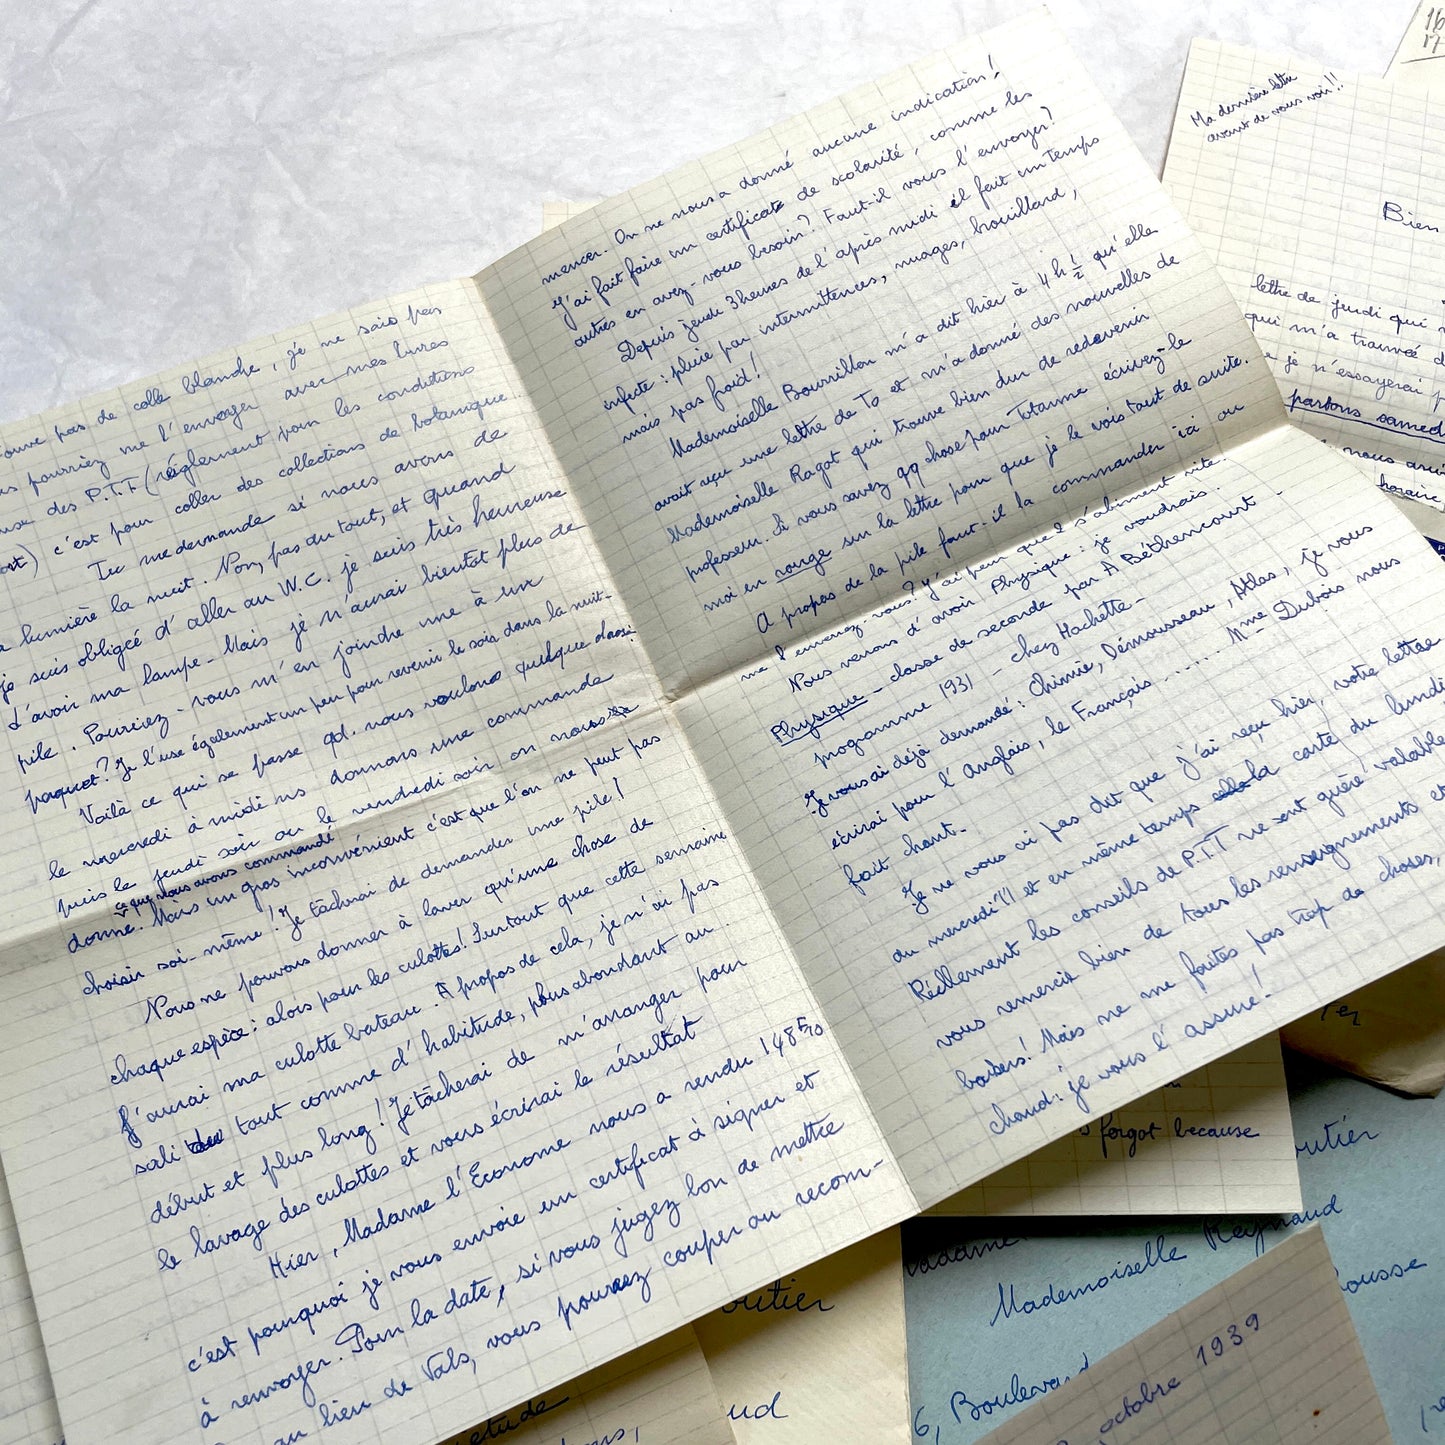 pas de colle blanche, je ne sais pas
pourriez me l'envoyer avec mes livres
des P.T.T (réglement pour les conditions
c'est pour coller des collections de botanique.
Tu me demande si nous avons de
lumière la nuit. Non, pas du tout, et quand
je suis obligée d'aller au W.C. je suis très heureuse
d'avoir ma lampe - Mais je n'aurai bientôt plus de
pile. Pourriez-vous m'en joindre une à un
paquet? Je l'use également un peu pour revenir le soir dans la nuit-
Voilà ce qui se passe qd. nous voulons quelque chose:
le mercredi à midi ns donnons une commande
puis le jeudi soir ou le vendredi soir on nous
ce que nous avons commandé
donne. Mais un gros inconvénient c'est que l'on ne peut pas
choisir soi-même! Je tâcherai de demander une pile!
Nous ne pouvons donner à laver qu'une chose de
chaque espèce: alors pour les culottes! Surtout que cette semaine
j'aurai ma culotte bateau. A propos de cela, je n'ai pas
sali du tout comme d'habitude, plus abondant au
début et plus long! Je tâcherai de m'arranger pour
le lavage des culottes et vous écrirai le résultat
Hier, Madame l'Econome nous a rendu 148F70
c'est pourquoi je vous envoie un certificat à signer et
à renvoyer. Pour la date, si vous jugez bon de mettre
au lieu de Vals, vous pourrez couper ou recom-
mencer. On ne nous a donné aucune indication!
J'ai fait faire un certificat de scolarité, comme les
autres en avez-vous besoin? Faut-il vous l'envoyer?
Depuis jeudi 3 heures de l'après midi il fait un temps
infecte: pluie par intermittences, nuages, brouillard,
mais pas froid!
Mademoiselle Bourrillon m'a dit hier à 4 h ½ qu'elle
avait reçu une lettre de To et m'a donné des nouvelles de
Mademoiselle Ragot qui trouve bien dur de redevenir
professeur. Si vous savez qq chose pour Totanne écrivez-le
moi en rouge sur la lettre pour que je le vois tout de suite.
A propos de la pile faut-il la commander ici ou
me l'envoyez-vous? J'ai peur que l s'abiment vite.
Nous venons d'avoir Physique: je voudrais.
Physique - classe de seconde par A Béthencourt -
programme 1931 - chez Hachette -
Je vous ai déjà demandé: Chimie, Démousseau, Atlas, je vous
écrirai pour l'Anglais, le Français ...... Mme Dubois nous
fait chant -
Je ne vous ai pas dit que j'ai reçu hier, votre lettre
du mercredi 11 et en même temps la carte du lundi
Réellement les conseils de P.T.T ne sont guère valable
vous remercie bien de tous les renseignements et
baisers! Mais ne me faites pas trop de choses,
chaud: je vous l'assure!
Ma dernière lettre
avant de vous voir!!
Bien
lettre de jeudi qui
qui m'a trouvée
je n'essayerai
partons samed
nous
horaire
16
17
forgot because
Mademoiselle Reynaud
6, Boulevard
octobre 1939